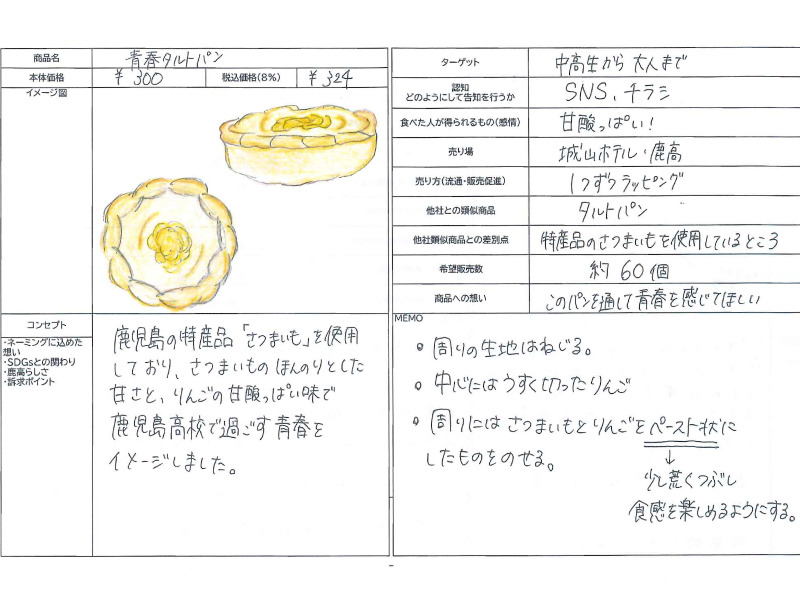 商品名 青春タルトパン
本体価格 ¥300 税込価格(8%) ¥324
イメージ図
コンセプト
・ネーミングに込めた
想い
・SDGsとの関わり
・鹿高らしさ
・訴求ポイント
鹿児島の特産品「さつまいも」を使用
しており、さつまいものほんのりとした
甘さと、りんごの甘酸っぱい味で
鹿児島高校で過ごす青春を
イメージしました。
ターゲット 中高生から大人まで
認知
どのようにして告知を行うか SNS、チラシ
食べた人が得られるもの(感情) 甘酸っぱい!
売り場 城山ホテル・鹿高
売り方(流通・販売促進) 1つずつラッピング
他社との類似商品 タルトパン
他社類似商品との差別点 特産品のさつまいもを使用しているところ
希望販売数 約60個
商品への想い このパンを通して青春を感じてほしい
MEMO
。周りの生地はねじる。
。中心にはうすく切ったりんご
。周りにはさつまいもとりんごをペースト状に
したものをのせる。
↓
少し荒くつぶし
食感を楽しめるようにする。